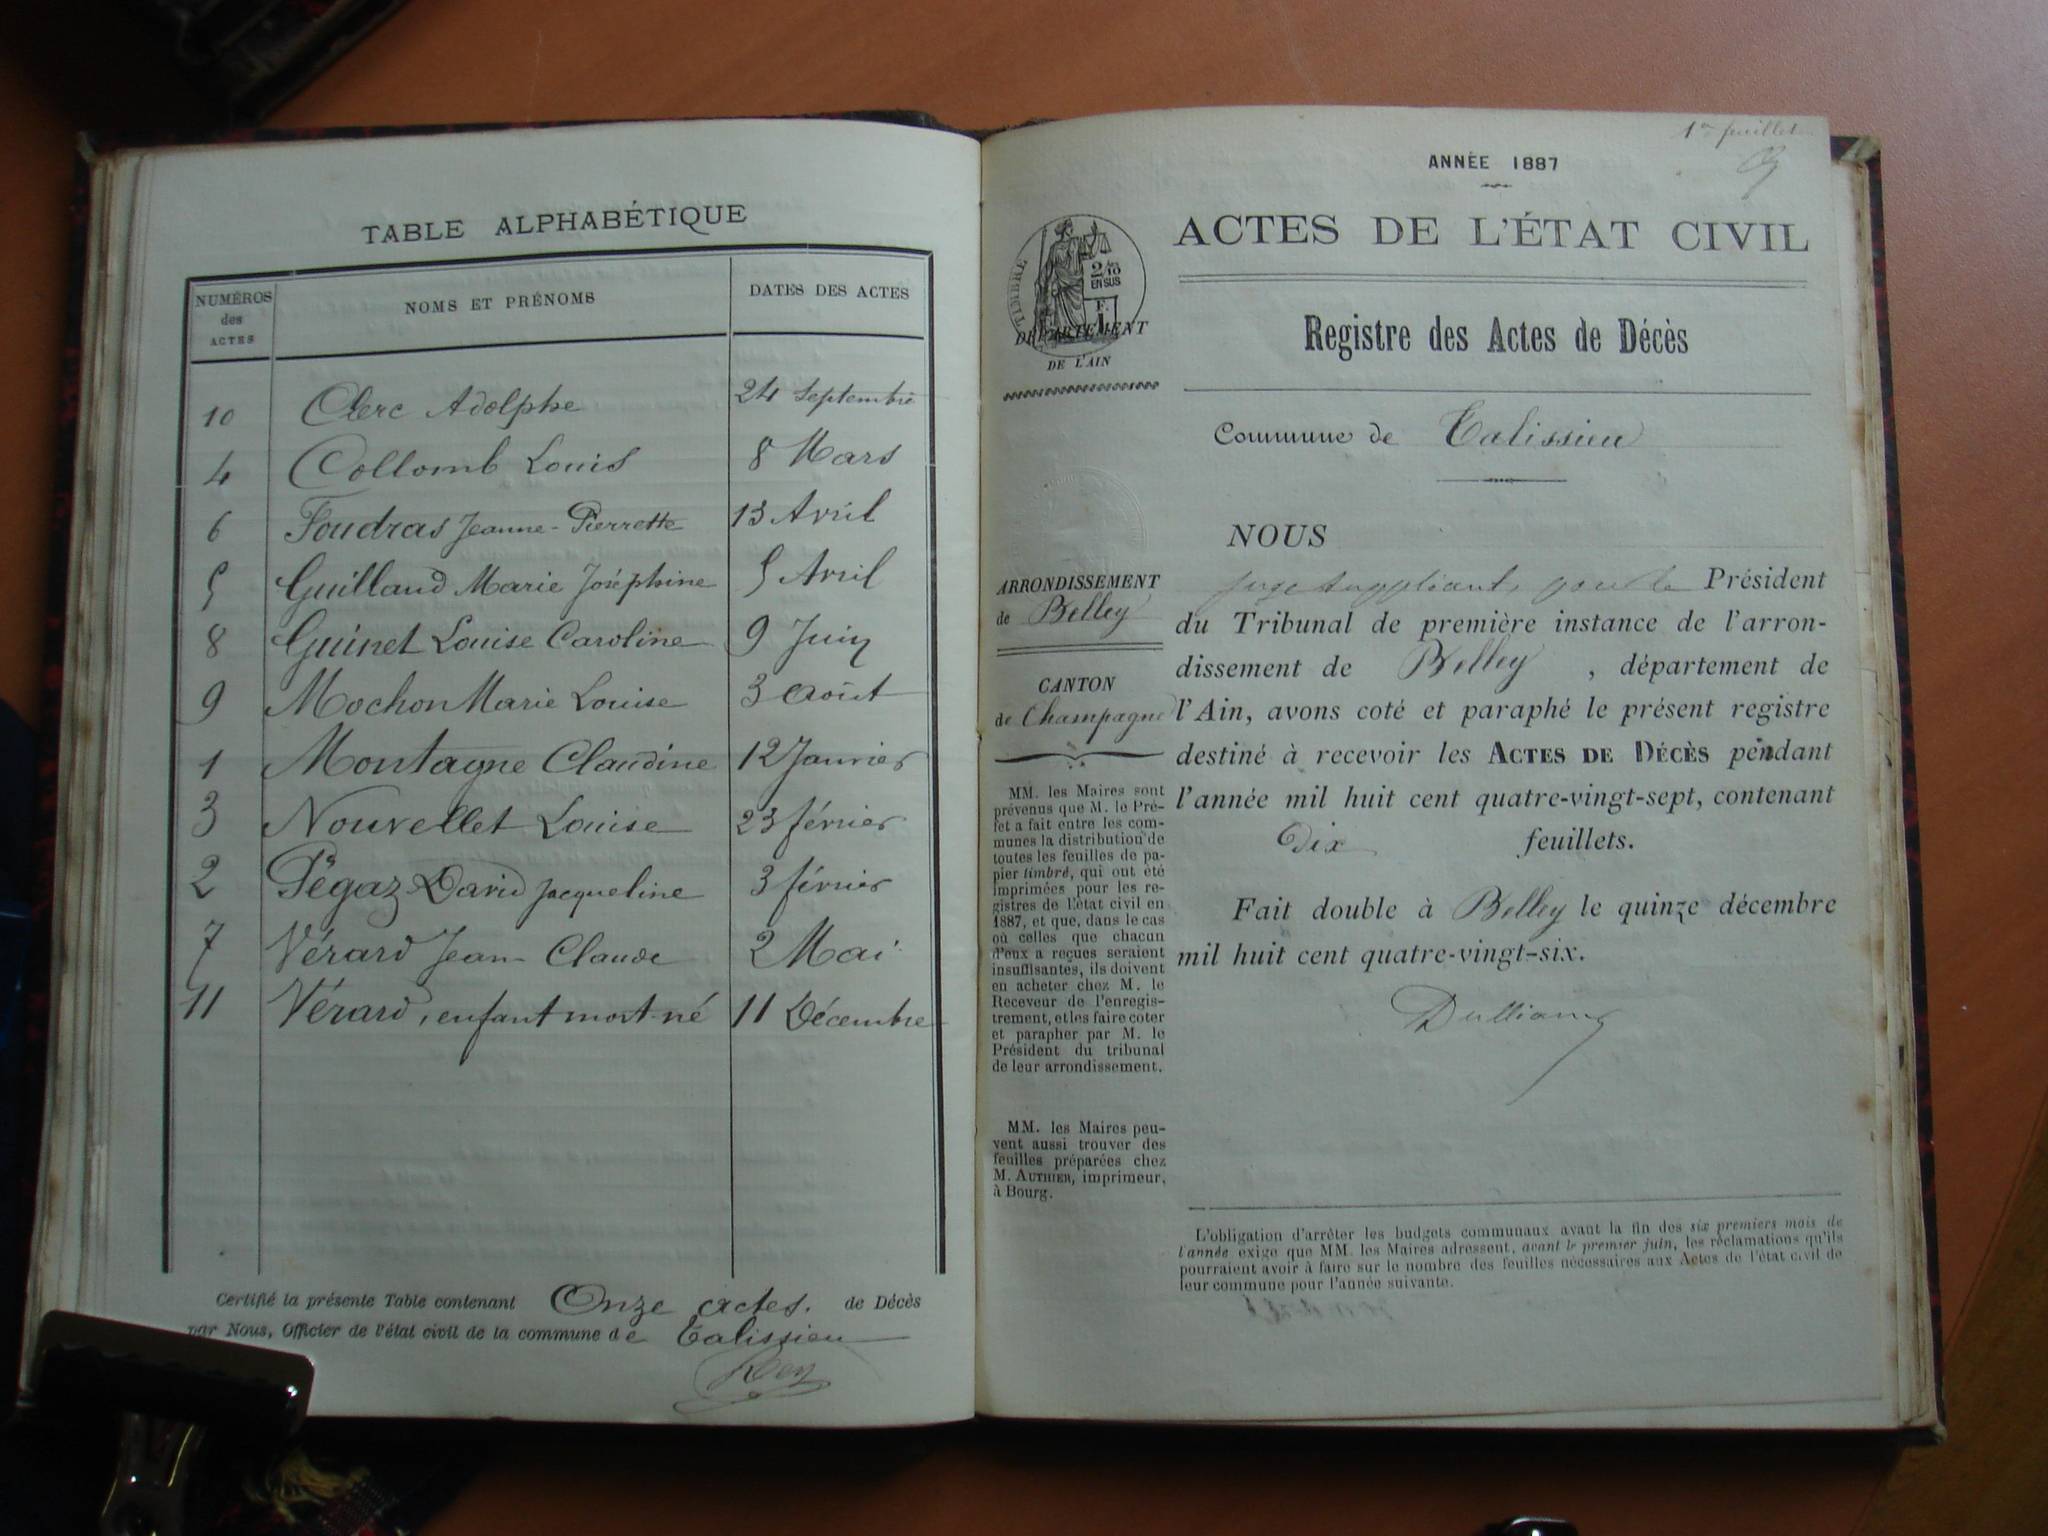 TABLE ALPHABÉTIQUE
NUMÉROS des ACTES NOMS ET PRÉNOMS DATES DES ACTES
10 Clerc Adolphe 24 Septembre
4 Collomb Louis 8 Mars
6 Foudras Jeanne-Pierrette 13 Avril
5 Guilland Marie Joséphine 5 Avril
8 Guinet Louise Caroline 9 Juin
9 Mochon Marie Louise 3 Août
1 Montagne Claudine 12 Janvier
3 Nouvellet Louise 23 février
2 Pégaz David Jacqueline 3 février
7 Vérard Jean Claude 2 Mai
11 Vérard, enfant mort-né 11 Décembre
Certifié la présente Table contenant Onze actes. de Décès
par Nous, Officier de l'état civil de la commune de Talissieu
Rey
1er feuillet
ANNÉE 1887
ACTES DE L'ÉTAT CIVIL
TIMBRE
2/10
EN SUS
F.
1
DÉPARTEMENT
DE L'AIN
Registre des Actes de Décès
Commune de Talissieu
ARRONDISSEMENT
de Belley
CANTON
de Champagne
MM. les Maires sont
prévenus que M. le Pré-
fet a fait entre les com-
munes la distribution de
toutes les feuilles de pa-
pier timbré, qui ont été
imprimées pour les re-
gistres de l'état civil en
1887, et que, dans le cas
où celles que chacun
d'eux a reçues seraient
insuffisantes, ils doivent
en acheter chez M. le
Receveur de l'enregis-
trement, et les faire coter
et parapher par M. le
Président du tribunal
de leur arrondissement.
MM. les Maires peu-
vent aussi trouver des
feuilles préparées chez
M. AUTHIER, imprimeur,
à Bourg.
NOUS
Juge suppléant, pour le Président
du Tribunal de première instance de l'arron-
dissement de Belley, département de
l'Ain, avons coté et paraphé le présent registre
destiné à recevoir les ACTES DE DÉCÈS pendant
l'année mil huit cent quatre-vingt-sept, contenant
Dix feuillets.
Fait double à Belley le quinze décembre
mil huit cent quatre-vingt-six.
L'obligation d'arrêter les budgets communaux avant la fin des six premiers mois de
l'année exige que MM. les Maires adressent, avant le premier juin, les réclamations qu'ils
pourraient avoir à faire sur le nombre des feuilles nécessaires aux Actes de l'état civil de
leur commune pour l'année suivante.